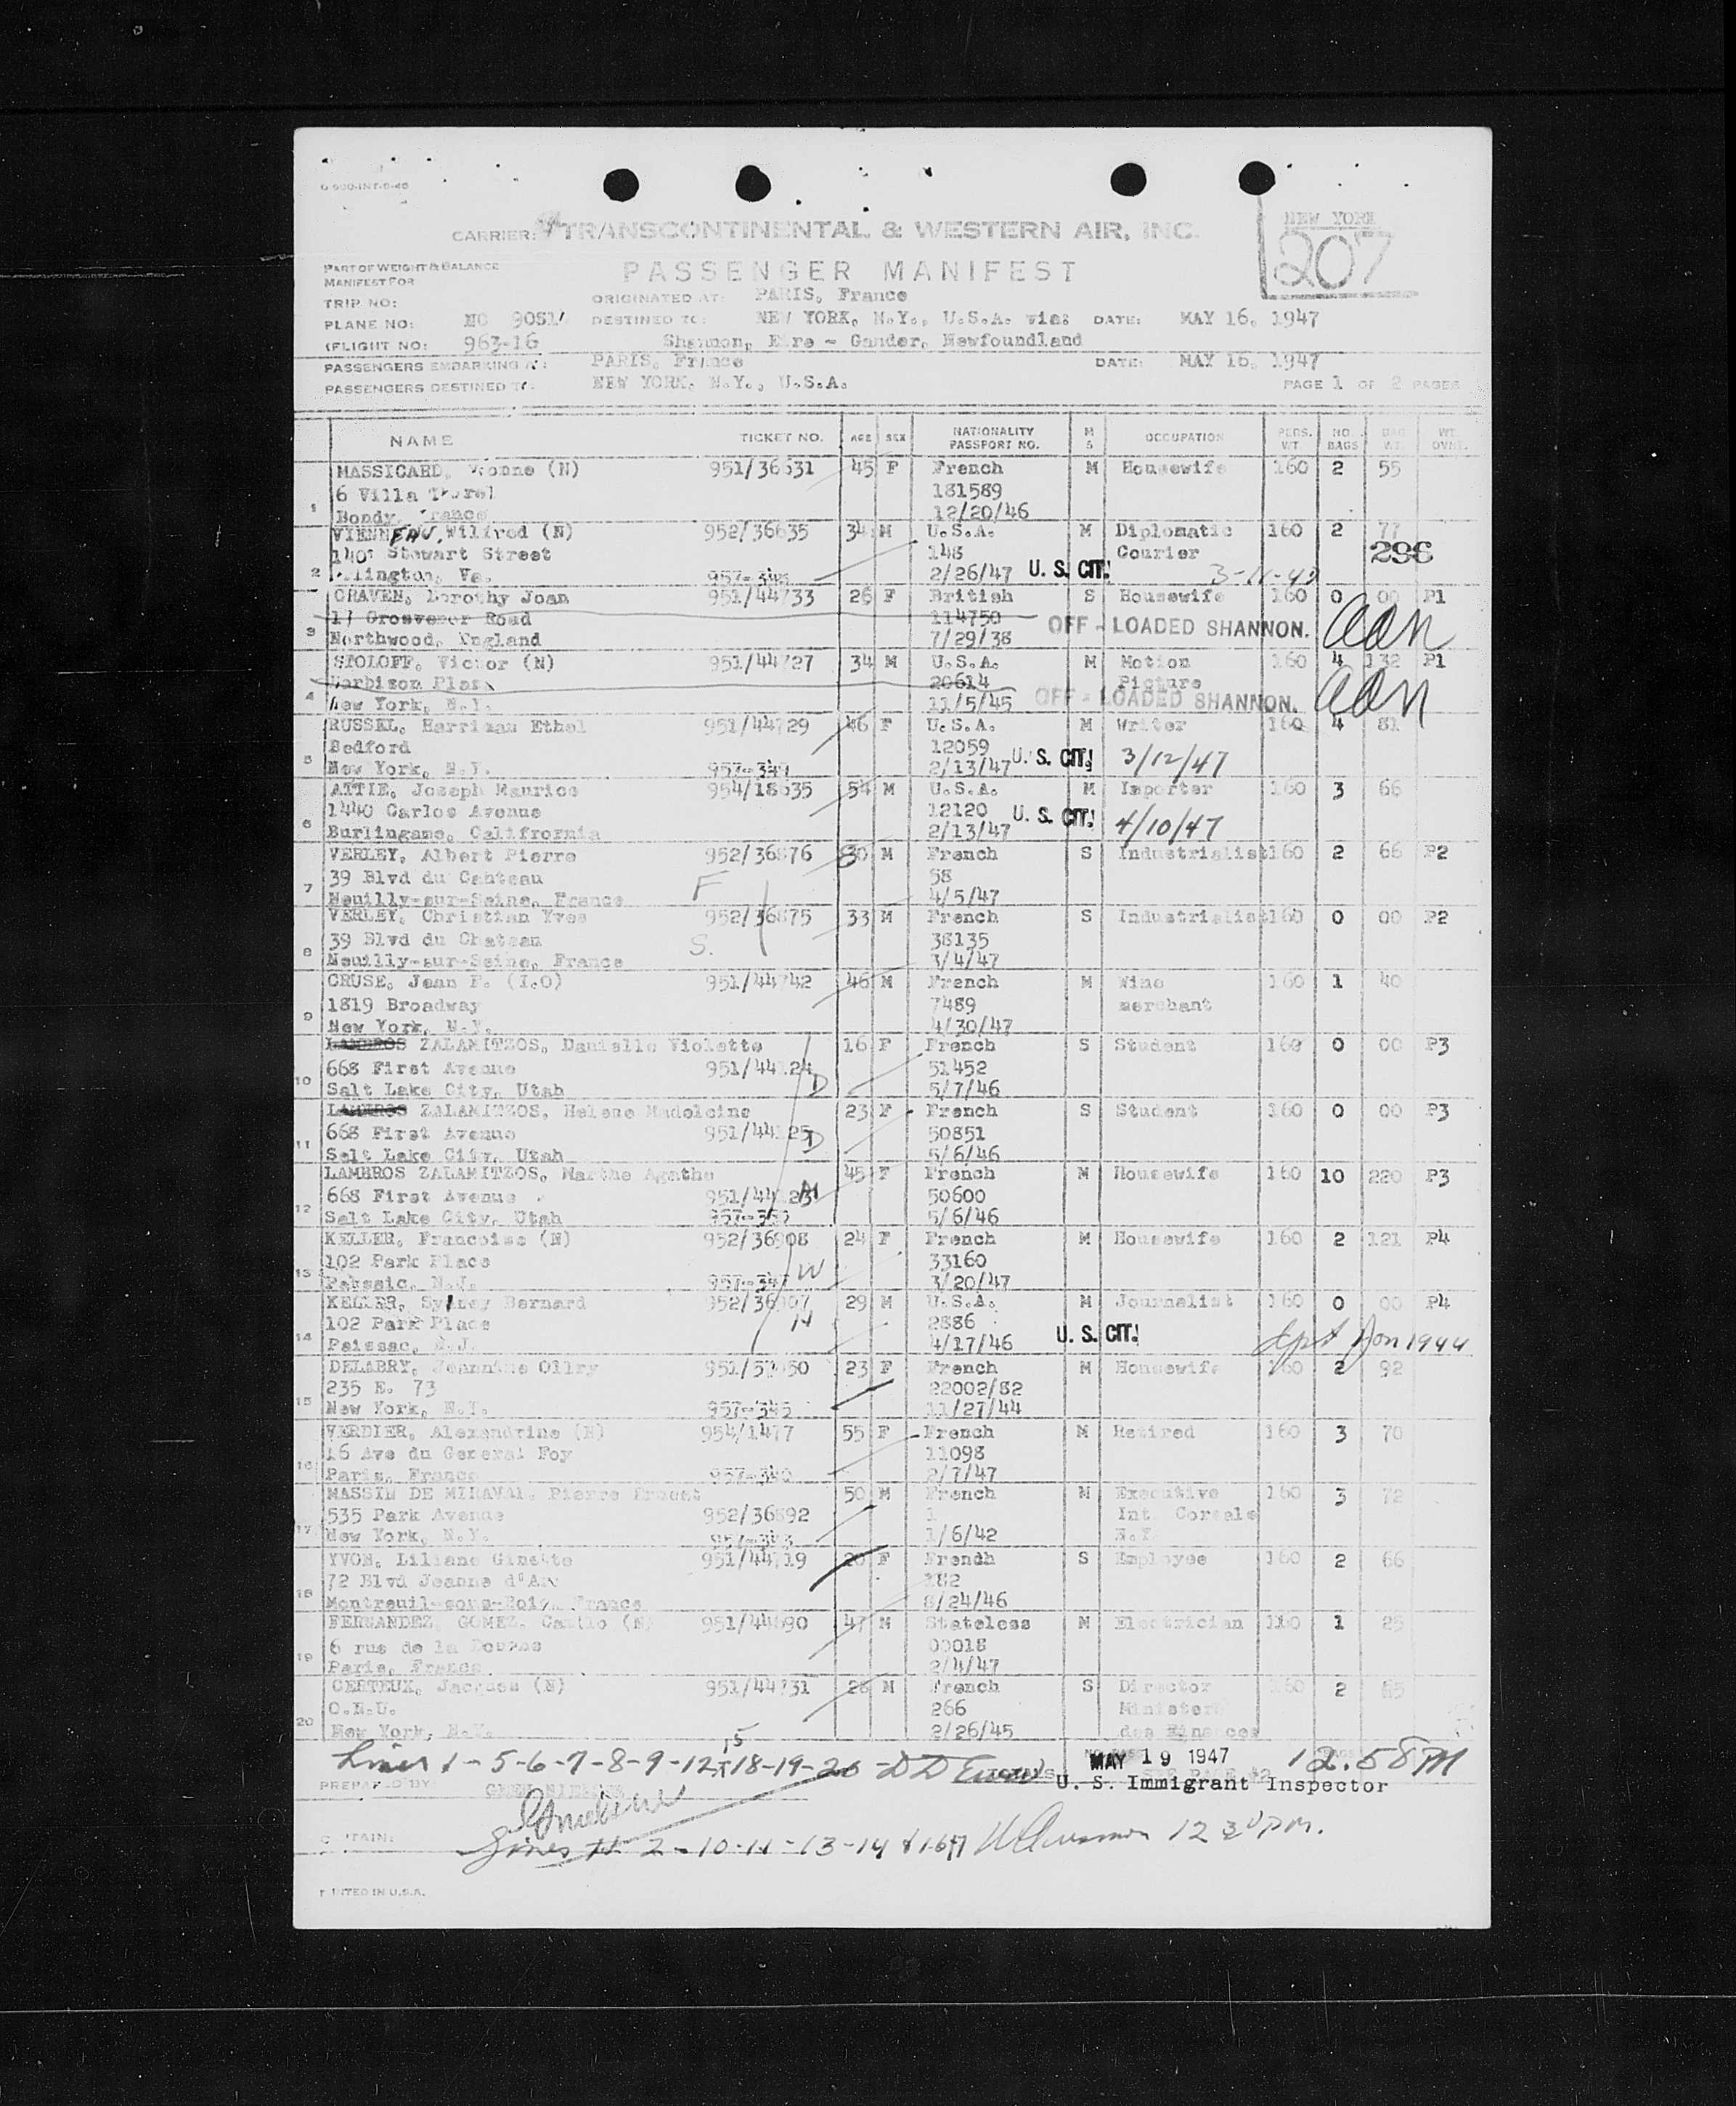 NEW YORK
207
CARRIER: TRANSCONTINENTAL & WESTERN AIR, INC.
PART OF WEIGHT & BALANCE
MANIFEST FOR
PASSENGER MANIFEST
TRIP NO: ORIGINATED AT: PARIS, France
PLANE NO: NC DESTINED TO: NEW YORK, N.Y., U.S.A. via: DATE: MAY 16, 1947
FLIGHT NO: 963-16 Shannon, Eire - Gander, Newfoundland
PASSENGERS EMBARKING AT: PARIS, France DATE: MAY 16, 1947
PASSENGERS DESTINED TO: NEW YORK, N.Y., U.S.A. PAGE 1 OF 2 PAGES
NAME TICKET NO. AGE SEX NATIONALITY PASSPORT NO. M S OCCUPATION PERS. WT. NO. BAGS BAG WT. WT. OVNT.
MASSICARD, Yvonne (N) 951/36631 45 F French M Housewife 160 2 55
6 Villa 181589
1 Bondy, France 12/20/46
Wilfred (N) 952/36635 34 M U.S.A. M Diplomatic 160 2 77
Stewart Street 148 Courier 296
2 Va. 2/26/47 U. S. CIT.
CRAVEN, Dorothy Joan 951/44733 26 F British S Housewife 160 0 00 P1
Grosvenor Road 114750
3 Northwood, England 7/29/38 OFF - LOADED SHANNON.
STOLOFF, Victor (N) 951/44727 34 M U.S.A. M Motion 160 4 132 P1
Barbison Plaza 20614 Picture
4 New York, N.Y. 11/5/45 OFF - LOADED SHANNON.
RUSSEL, Harriman Ethel 951/44729 46 F U.S.A. M Writer 160 4 81
Bedford 12059
5 New York, N.Y. 2/13/47 U. S. CIT. 3/12/47
ATTIE, Joseph Maurice 954/18635 54 M U.S.A. M Importer 160 3 66
1440 Carlos Avenue 12120
6 Burlingame, Califrornia 2/13/47 U. S. CIT. 4/10/47
VERLEY, Albert Pierre 952/36876 80 M French S Industrialist 160 2 66 P2
39 Blvd du Cahteau F 58
7 Neuilly-sur-Seine, France 4/5/47
VERLEY, Christian Yves 952/36875 33 M French S Industrialist 160 0 00 P2
39 Blvd du Chateau S. 38135
8 Neuilly-sur-Seine, France 3/4/47
CRUSE, Jean F. (I.O) 951/44742 46 M French M Wine 160 1 40
1819 Broadway 7489 merchant
9 New York, N.Y. 4/30/47
LAMBROS ZALAMITZOS, Danielle Violette 16 F French S Student 160 0 00 P3
668 First Avenue 951/44124 51452
10 Salt Lake City, Utah D 5/7/46
LAMBROS ZALAMITZOS, Helene Madeleine 23 F French S Student 160 0 00 P3
668 First Avenue 951/44125 D 50851
11 Salt Lake City, Utah 5/6/46
LAMBROS ZALAMITZOS, Marthe Agathe 45 F French M Housewife 160 10 220 P3
668 First Avenue 951/44123 M 50600
12 Salt Lake City, Utah 5/6/46
KELLER, Francoise (N) 952/36908 24 F French M Housewife 160 2 121 P4
102 Park Place 33160
13 Passaic, N.J. W 3/20/47
KELLER, Sydney Bernard 952/36907 29 M U.S.A. M Journalist 160 0 00 P4
102 Park Place H 2886
14 Paissac, N.J. 4/17/46 U. S. CIT. dept Jan 1944
DELABRY, Jeannine Ollry 23 F French M Housewife 160 2 92
235 E. 73 22002/82
15 New York, N.Y. 11/27/44
VERDIER, Alexandrine (N) 954/1477 55 F French M Retired 160 3 70
16 Ave du General Foy 11098
16 Paris, France 2/7/47
MASSIN DE MIRAVAL, Pierre Ernest 50 M French M Executive 160 3 72
535 Park Avenue 952/36892 1 Int. Cereals
17 New York, N.Y. 1/6/42 N.Y.
YVON, Liliane Ginette 951/44719 F Frendh S Employee 160 2 66
72 Blvd Jeanne d'Arc 182
18 Montreuil-sous-Bois, France 8/24/46
FERNANDEZ GOMEZ, Camilo (N) 951/44690 47 M Stateless M Electrician 1 25
6 rue de la 00018
19 Paris, France 2/4/47
CERTEUX, Jacques (N) 951/44731 26 M French S Director 160 2
O.N.U. 266 Ministere
20 New York, N.Y. 2/26/45 des Finances
15
Lines 1-5-6-7-8-9-12-18-19-20 MAY 19 1947 12.58 PM
U. S. Immigrant Inspector
PREPARED BY:
CAPTAIN:
Lines 2-10-11-13-14 12 30 PM.
PRINTED IN U.S.A.